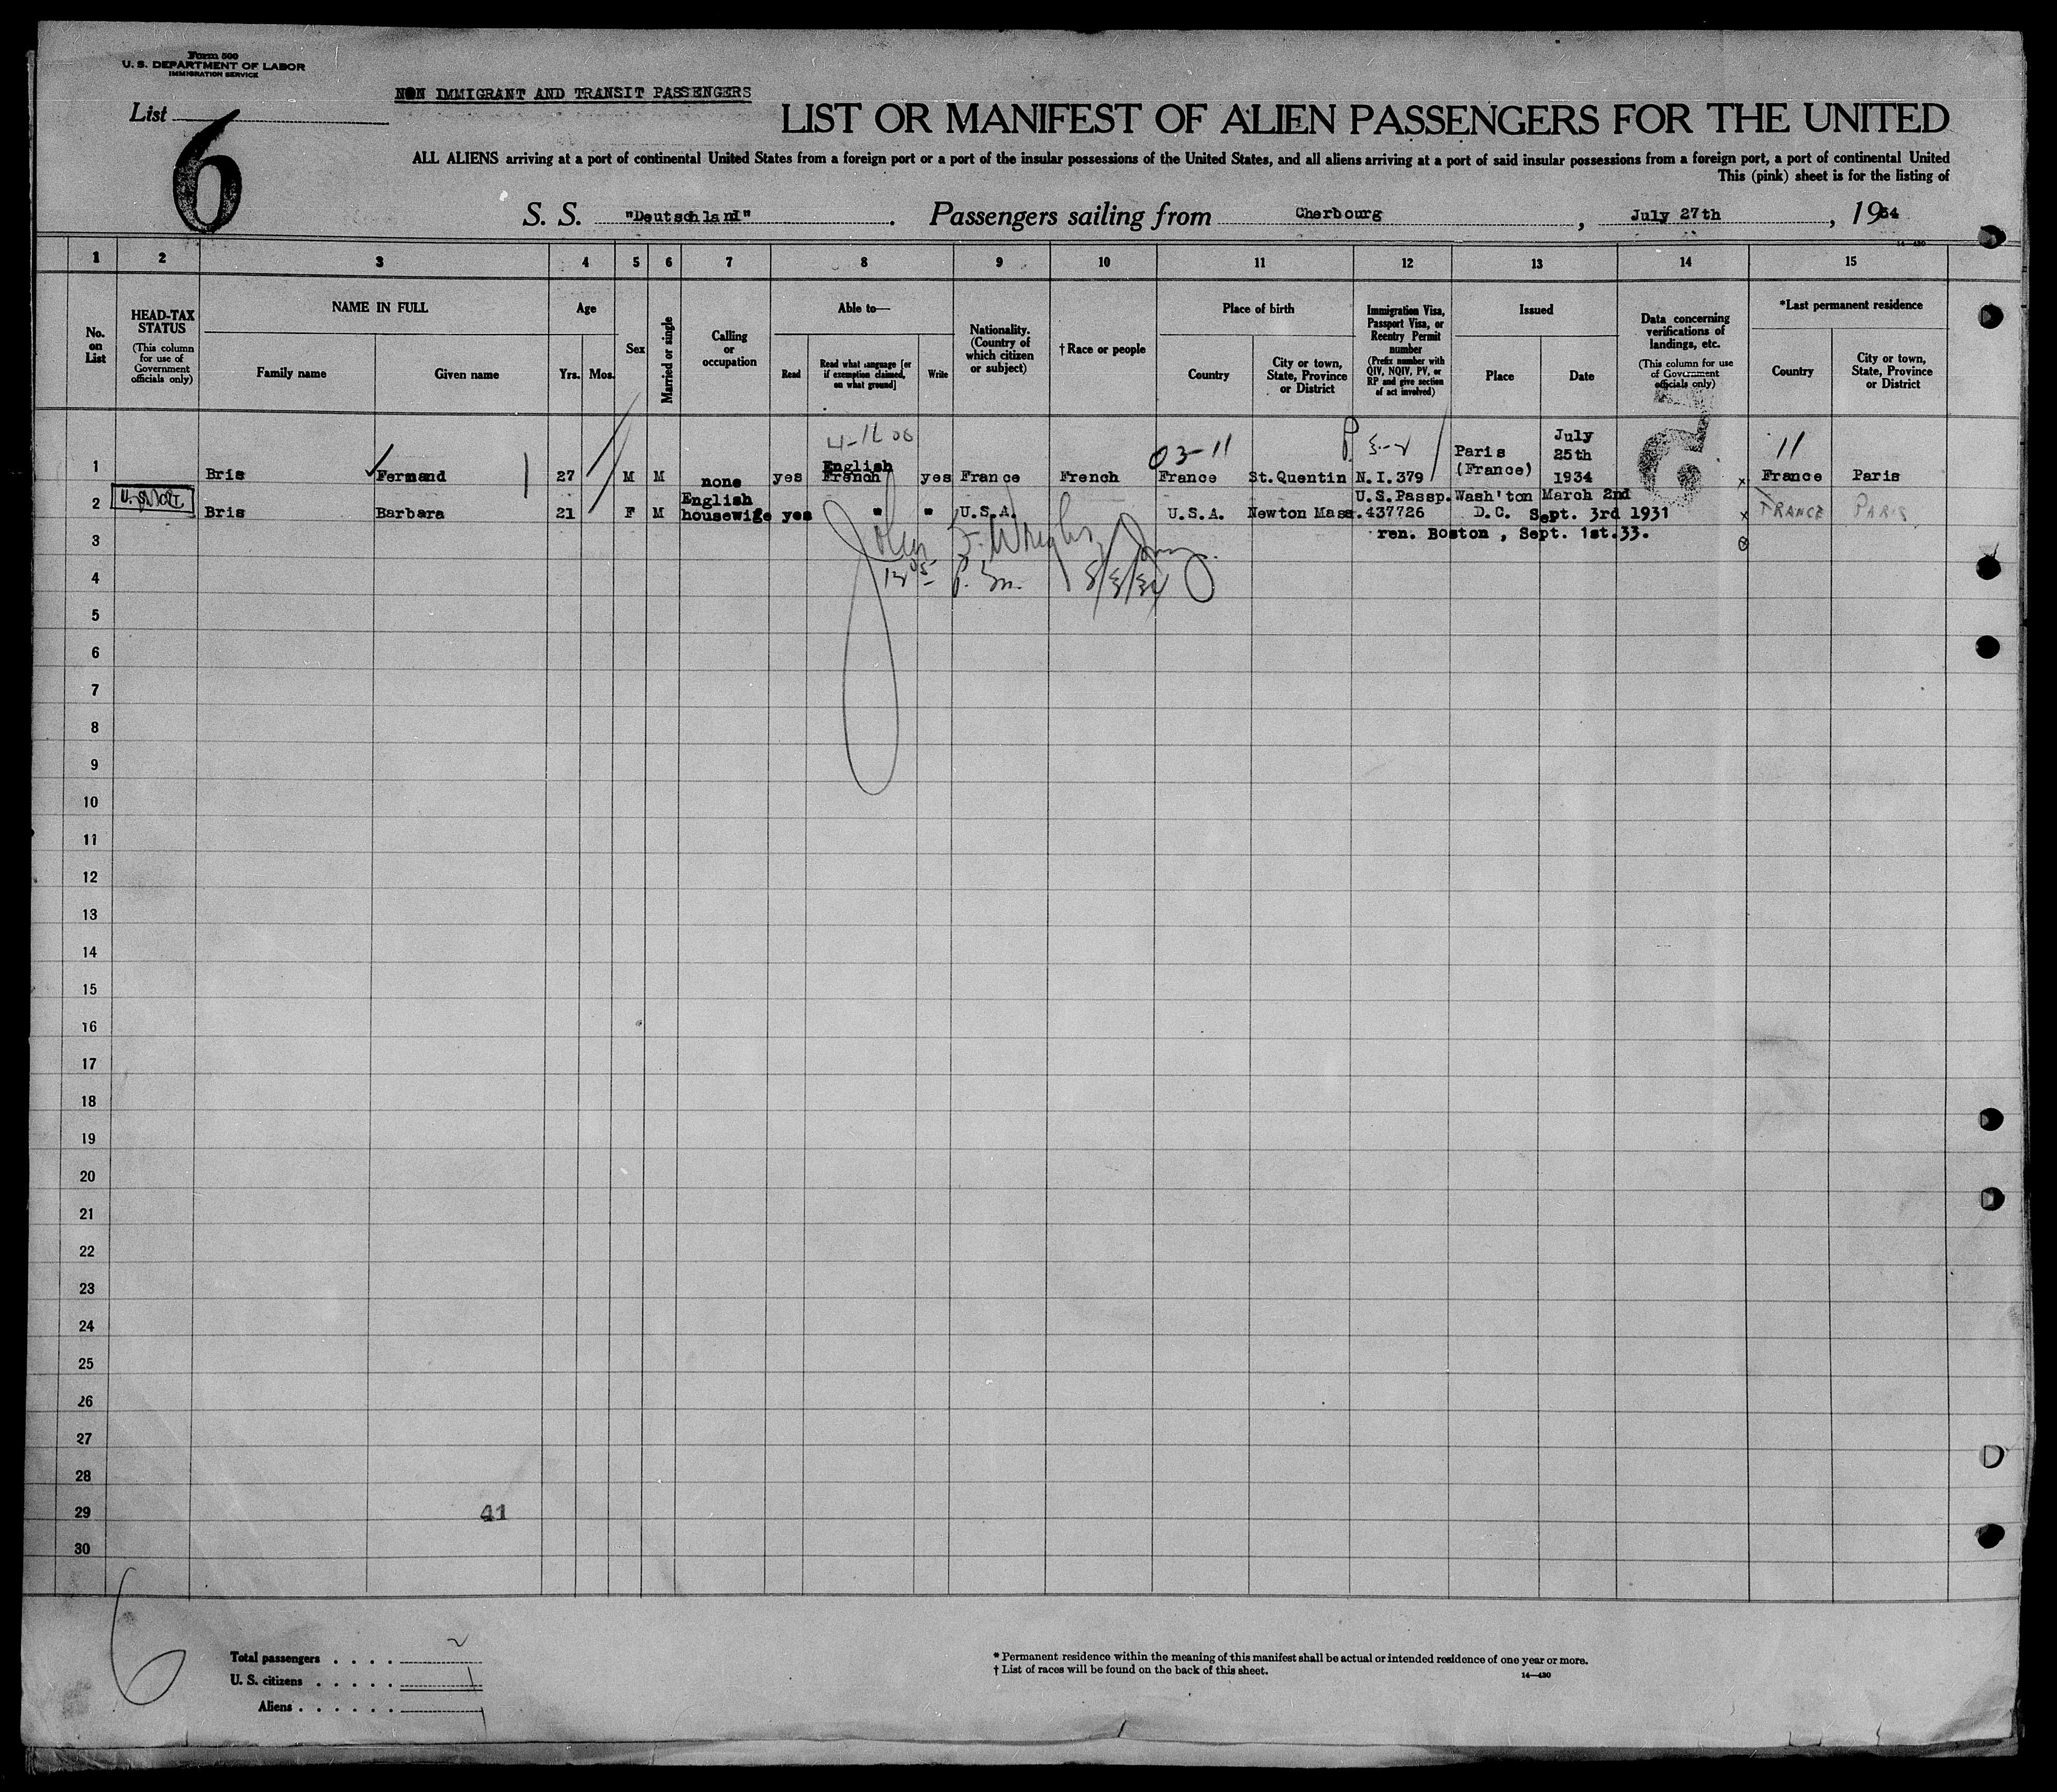 Form 500
U. S. DEPARTMENT OF LABOR
IMMIGRATION SERVICE
NON IMMIGRANT AND TRANSIT PASSENGERS
List
6
LIST OR MANIFEST OF ALIEN PASSENGERS FOR THE UNITED
ALL ALIENS arriving at a port of continental United States from a foreign port or a port of the insular possessions of the United States, and all aliens arriving at a port of said insular possessions from a foreign port, a port of continental United
This (pink) sheet is for the listing of
S. S. "Deutschland". Passengers sailing from Cherbourg, July 27th, 1934
14-430
1 2 3 4 5 6 7 8 9 10 11 12 13 14 15
No. on List
HEAD-TAX STATUS
(This column for use of Government officials only)
NAME IN FULL
Family name
Given name
Age
Yrs. Mos.
Sex
Married or single
Calling or occupation
Able to—
Read
Read what language [or if exemption claimed, on what ground]
Write
Nationality. (Country of which citizen or subject)
†Race or people
Place of birth
Country
City or town, State, Province or District
Immigration Visa, Passport Visa, or Reentry Permit number
(Prefix number with QIV, NQIV, PV, or RP and give section of act involved)
Issued
Place
Date
Data concerning verifications of landings, etc.
(This column for use of Government officials only)
*Last permanent residence
Country
City or town, State, Province or District
03-11
11
1 Bris Fernand 27 M M none yes English French yes France French France St. Quentin N.I.379 Paris (France) July 25th 1934 France Paris
2 Bris Barbara 21 F M English housewife yes " " U.S.A. U.S.A. Newton Mass. U.S.Passp. 437726 Wash'ton D.C. March 2nd Sept. 3rd 1931 FRANCE PARIS
ren. Boston , Sept. 1st.33.
John F. Wright
3
4
5
6
7
8
9
10
11
12
13
14
15
16
17
18
19
20
21
22
23
24
25
26
27
28
29
41
30
6
Total passengers . . . . 2
U. S. citizens . . . . . 1
Aliens . . . . . . 1
* Permanent residence within the meaning of this manifest shall be actual or intended residence of one year or more.
† List of races will be found on the back of this sheet.
14—430